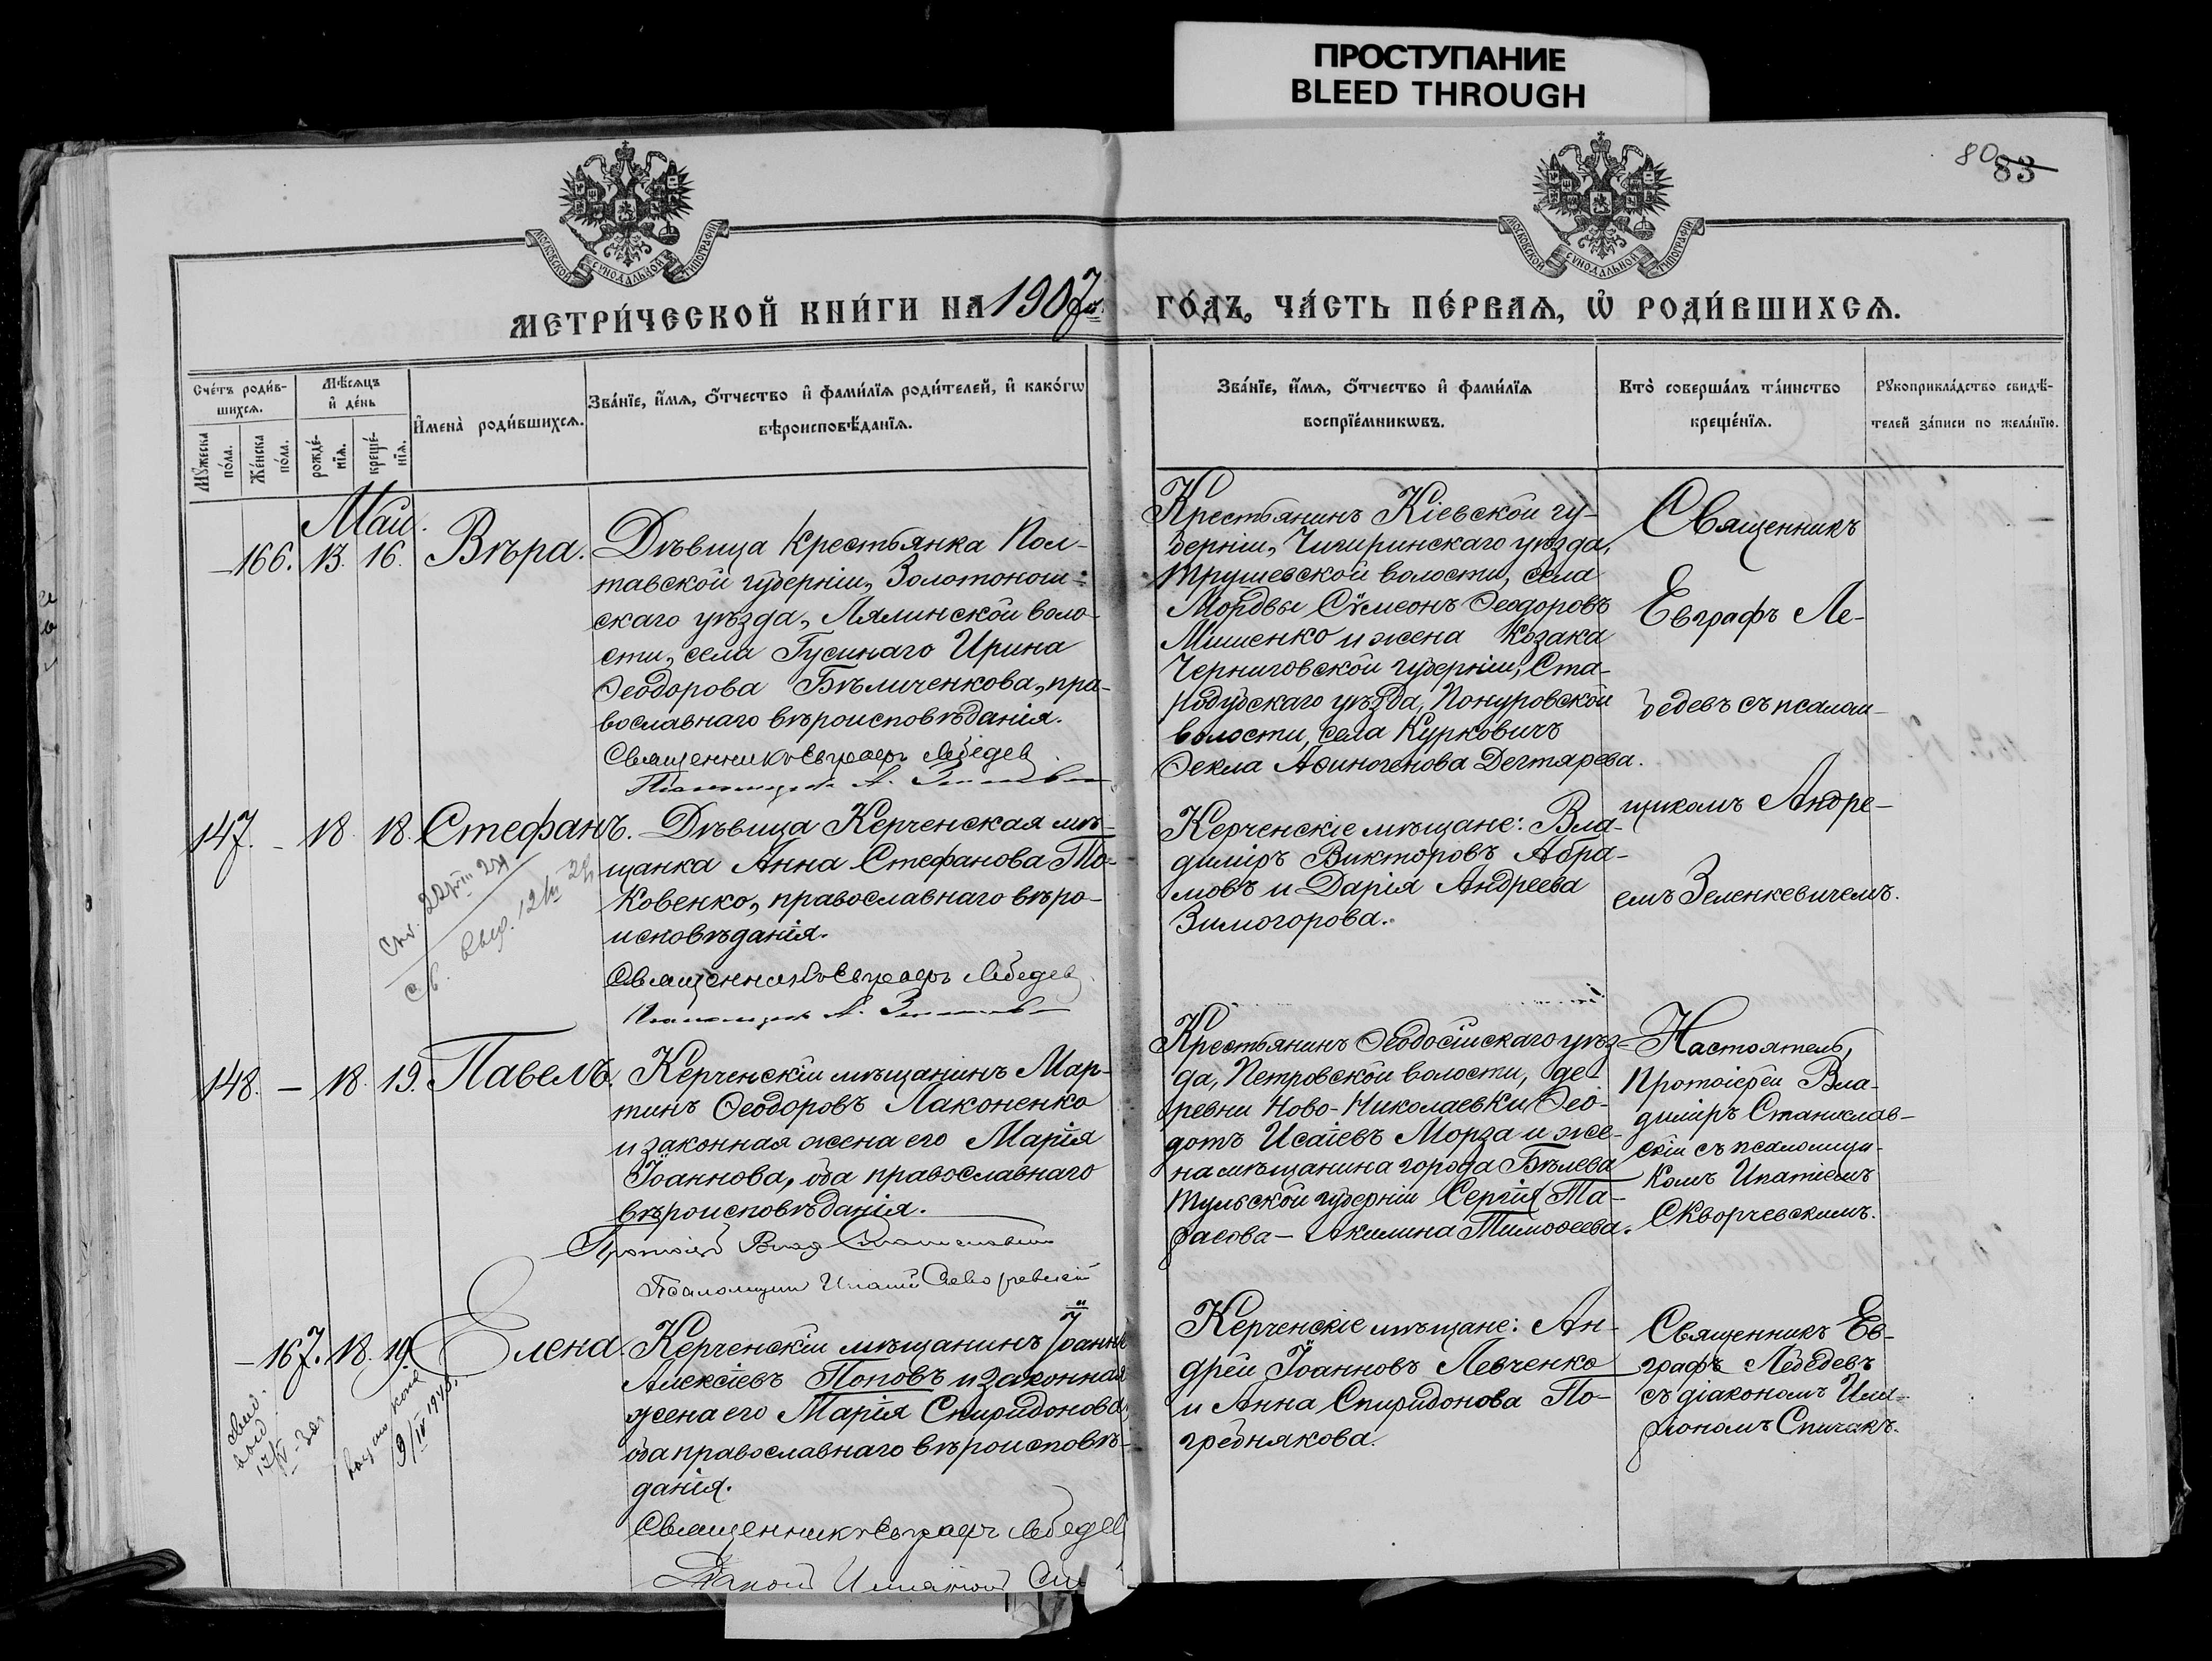 ПРОСТУПАНИЕ
BLEED THROUGH
80 83
МОСКОВСКОЙ СѴНОДАЛЬНОЙ ТИПОГРАФІИ
МОСКОВСКОЙ СѴНОДАЛЬНОЙ ТИПОГРАФІИ
МЕТРИ́ЧЕСКОЙ КНИ́ГИ НА 1907й ГО́ДЪ, ЧА́СТЬ ПЕ́РВАѦ, Ѡ҆ РОДИ́ВШИХСѦ.
Сче́тъ роди́в-
шихсѧ.
Мꙋ́жеска
по́ла.
Же́нска
по́ла.
Мѣ́сѧцъ
и҆ де́нь
рожде́-
нїѧ.
креще́-
нїѧ.
И҆мена̀ роди́вшихсѧ.
Зва́нїе, и҆́мѧ, ѻ҆́тчество и҆ фами́лїѧ роди́телей, и҆ како́гѡ
вѣроисповѣ́данїѧ.
Зва́нїе, и҆́мѧ, ѻ҆́тчество и҆ фами́лїѧ
воспрїе́мникѡвъ.
Кто̀ соверша́лъ та́инство
креще́нїѧ.
Рꙋкоприкла́дство свидѣ́-
телей за́писи по жела́нїю.
Май.
–166. 13. 16. Вѣра.
Дѣвица крестьянка Пол-
тавской губерніи, Золотонош-
скаго уѣзда, Лялинской воло-
сти, села Гусинаго Ирина
Ѳеодорова Бѣличенкова, пра-
вославнаго вѣроисповѣданія.
Священникъ Евграфъ Лебедев
Крестьянинъ Кіевской гу-
берніи, Чигиринскаго уѣзда,
Трушевской волости, села
Мордвы Сѵмеонъ Ѳеодоровъ
Мишенко и жена козака
Черниговской губерніи, Ста-
родубскаго уѣзда, Понуровской
волости, села Курковичъ
Ѳекла Аѳиногенова Дегтярева.
Священникъ
Евграфъ Ле-
бедевъ съ псалом-
щикомъ Андре-
емъ Зеленкевичемъ.
147. – 18. 18. Стефанъ.
Дѣвица Керченская мѣ-
щанка Анна Стефанова То-
ковенко, православнаго вѣро-
исповѣданія.
Священникъ Евграфъ Лебедев
Керченскіе мѣщане: Вла-
диміръ Викторовъ Абра-
мовъ и Дарія Андреева
Зимогорова.
148. – 18. 19. Павелъ.
Керченскій мѣщанинъ Мар-
тинъ Ѳеодоровъ Лаконенко
и законная жена его Марія
Іоаннова, оба православнаго
вѣроисповѣданія.
Протоіерей Влад Станиславскій
Псаломщик Ипатій Скворчевскій
Крестьянинъ Ѳеодосійскаго уѣз-
да, Петровской волости, де-
ревни Ново-Николаевки Ѳео-
дотъ Исаіевъ Морза и же-
на мѣщанина города Бѣлева
Тульской губерніи Сергія Та-
расова – Акилина Тимоѳеева.
Настоятель,
Протоіерей Вла-
диміръ Станислав-
скій съ псаломщи-
комъ Ипатіемъ
Скворчевскимъ.
– 167. 18. 19. Елена.
Керченскій мѣщанинъ Іоаннъ
Алексіевъ Поповъ и законная
жена его Марія Спиридонова,
оба православнаго вѣроисповѣ-
данія.
Священникъ Евграфъ Лебедев
Діакон
Керченскіе мѣщане: Ан-
дрей Іоанновъ Левченко
и Анна Спиридонова По-
греднякова.
Священникъ Ев-
графъ Лебедевъ
съ діакономъ Ила-
ріономъ Спичакъ.